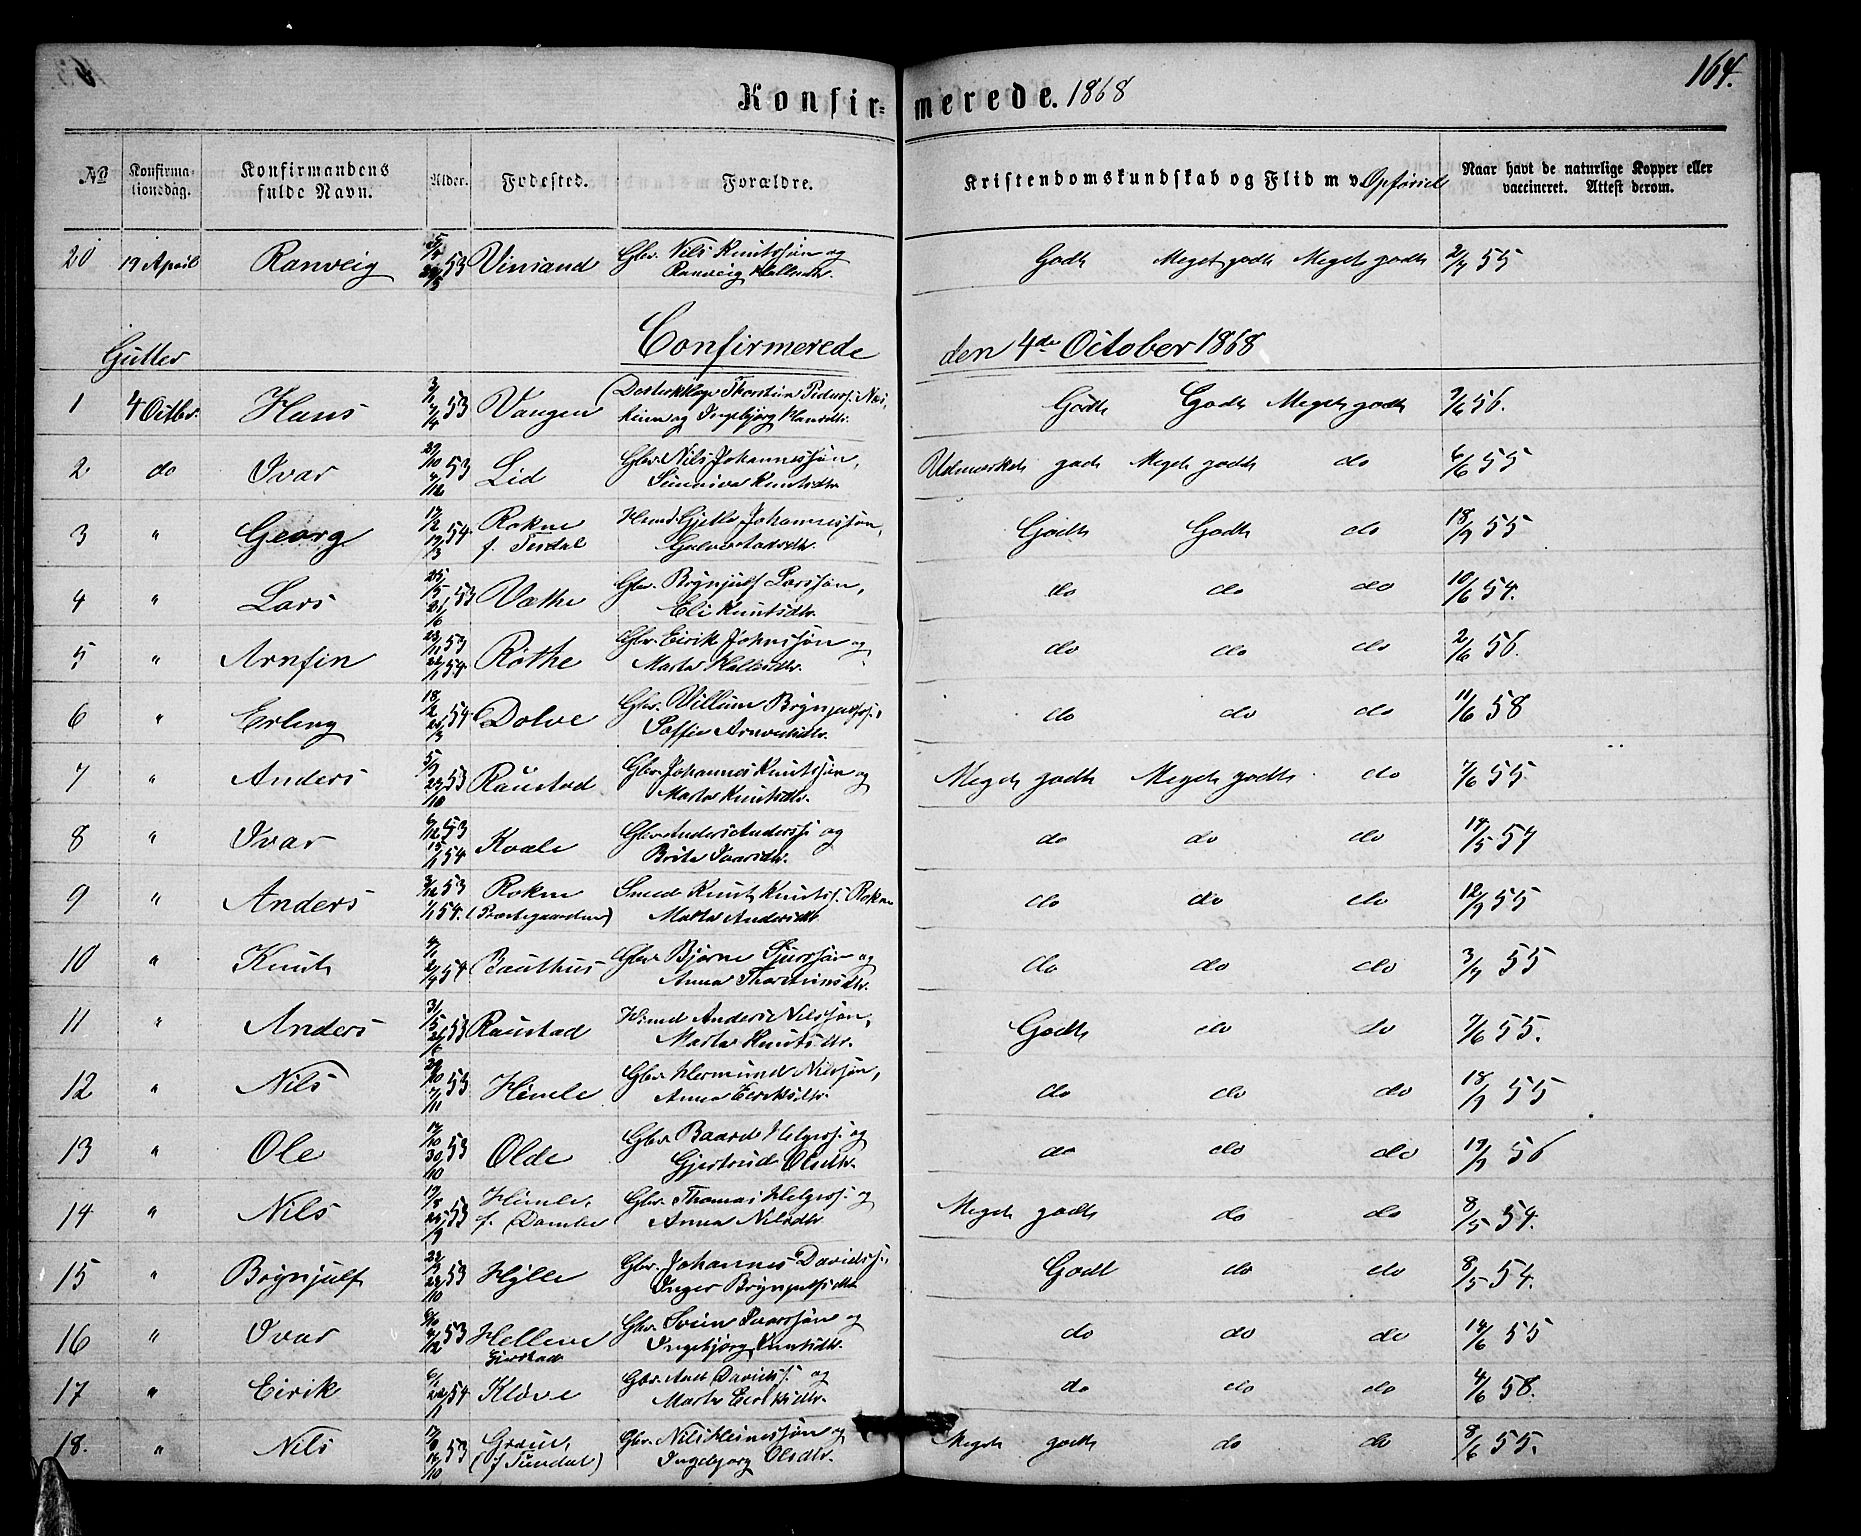 Konfirmerede. 1868
164.
No
Konfirmationsdag.
Konfirmandens fulde Navn.
Alder.
Fødested.
Forældre.
Kristendomskundskab og Flid m v. Opførsel
Naar havt de naturlige Kopper eller vaccineret. Attest derom.
20 19 April Ranveig 53 Vinsand Gbr. Nils Knutssøn og Ranveig Hallesdtr. Godt Meget godt Meget godt 2/7 55
Gutter Confirmerede den 4de October 1868
1 4 Octbr. Hans 53 Vangen Thorstein Peders. og Ingebjørg Hansdtr. Godt Godt Meget godt 56.
2 do Ivar 29/10 53 Lid Gbr. Nils Johannessøn, Synneva Knutsdtr. Udmærket godt Meget godt do 6/6 55
3 " Georg 54 Rokne Gjelle Johannessøn, Godt Godt do 18/9 55
4 " Lars 25/5 53 Væthe Gbr. Brynjulf Larssøn, Eli Knutsdtr. do do do 10/6 54.
5 " Arnfin 23/11 53 54. Røthe Gbr. Eirik Johnssøn og Marta Hallesdtr. do do do 2/6 56.
6 " Erling 18/2 54 Dolve Gbr. Villum Brynjulfss., do do do 11/6 58
7 " Anders 53 Raustad Gbr. Johannes Knutssøn og Marta Knutsdtr. Meget godt Meget godt do 7/6 55
8 " Ivar 6/12 53 54 Kvale Gbr. Anders Anderss. og Brita Ivarsdtr. do do do 14/5 54
9 " Anders 53 54. Rokne Smed Knut Knutss. Rokne Marta Andersdtr. do do do 12/9 55
10 " Knut 54 Bauthus Gbr. Bjørne Sjurssøn og Anna Thorsteinsdtr. do do do 3/7 55
11 " Anders 31/5 53 Raustad Anders Nilssøn, Marta Knutsdtr. Godt do do 7/6 55.
12 " Nils 53 Himle Gbr. Hermund Nilssøn, Anna Eiriksdtr. do do do 18/9 55
13 " Ole 53 Olde Gbr. Baard Helgess. og Gjertrud Olsdtr. do do do 19/9 56
14 " Nils 53 Himle, Gbr. Thomas Helgess. og Anna Nilsdtr. Meget godt do do 8/5 54.
15 " Brynjulf 53 Hylle Gbr. Johannes Davidss., Inger Brynjulfsdtr. Godt do do 8/5 54.
16 " Ivar 53 Hellene Gjerstad Gbr. Svein Ivarssøn og Ingebjørg Knutsdtr. do do do 14/6 55
17 " Eirik 54 Kløve Gbr. And. Davidss. og Marta Eiriksdtr. do do do 4/6 58.
18. " Nils 53 Gbr. Nils Heinessøn og Ingebjørg Olsdtr. Meget godt do do 8/6 55.